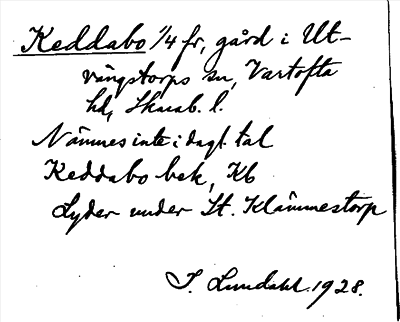 Keddabo 1/4 fr, gård i Ut-
vängstorps sn, Vartofta
hd, Skarab. l.
Nämnes inte i dagl. tal
Keddabo bek, Kb
Lyder under St. Klämmestorp
I. Lundahl 1928.